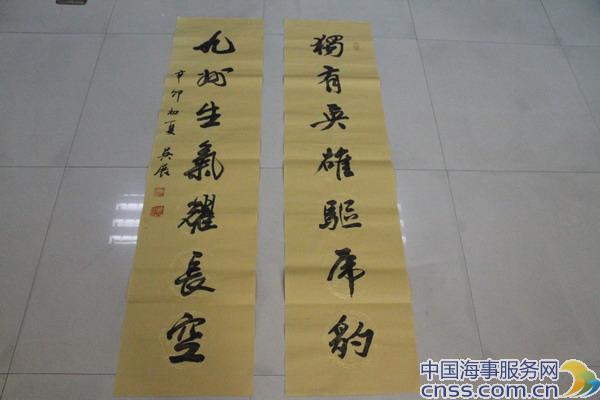 獨有英雄驅虎豹
九州生氣耀長空
辛卯初夏
中国海事服务网
cnss.com.cn